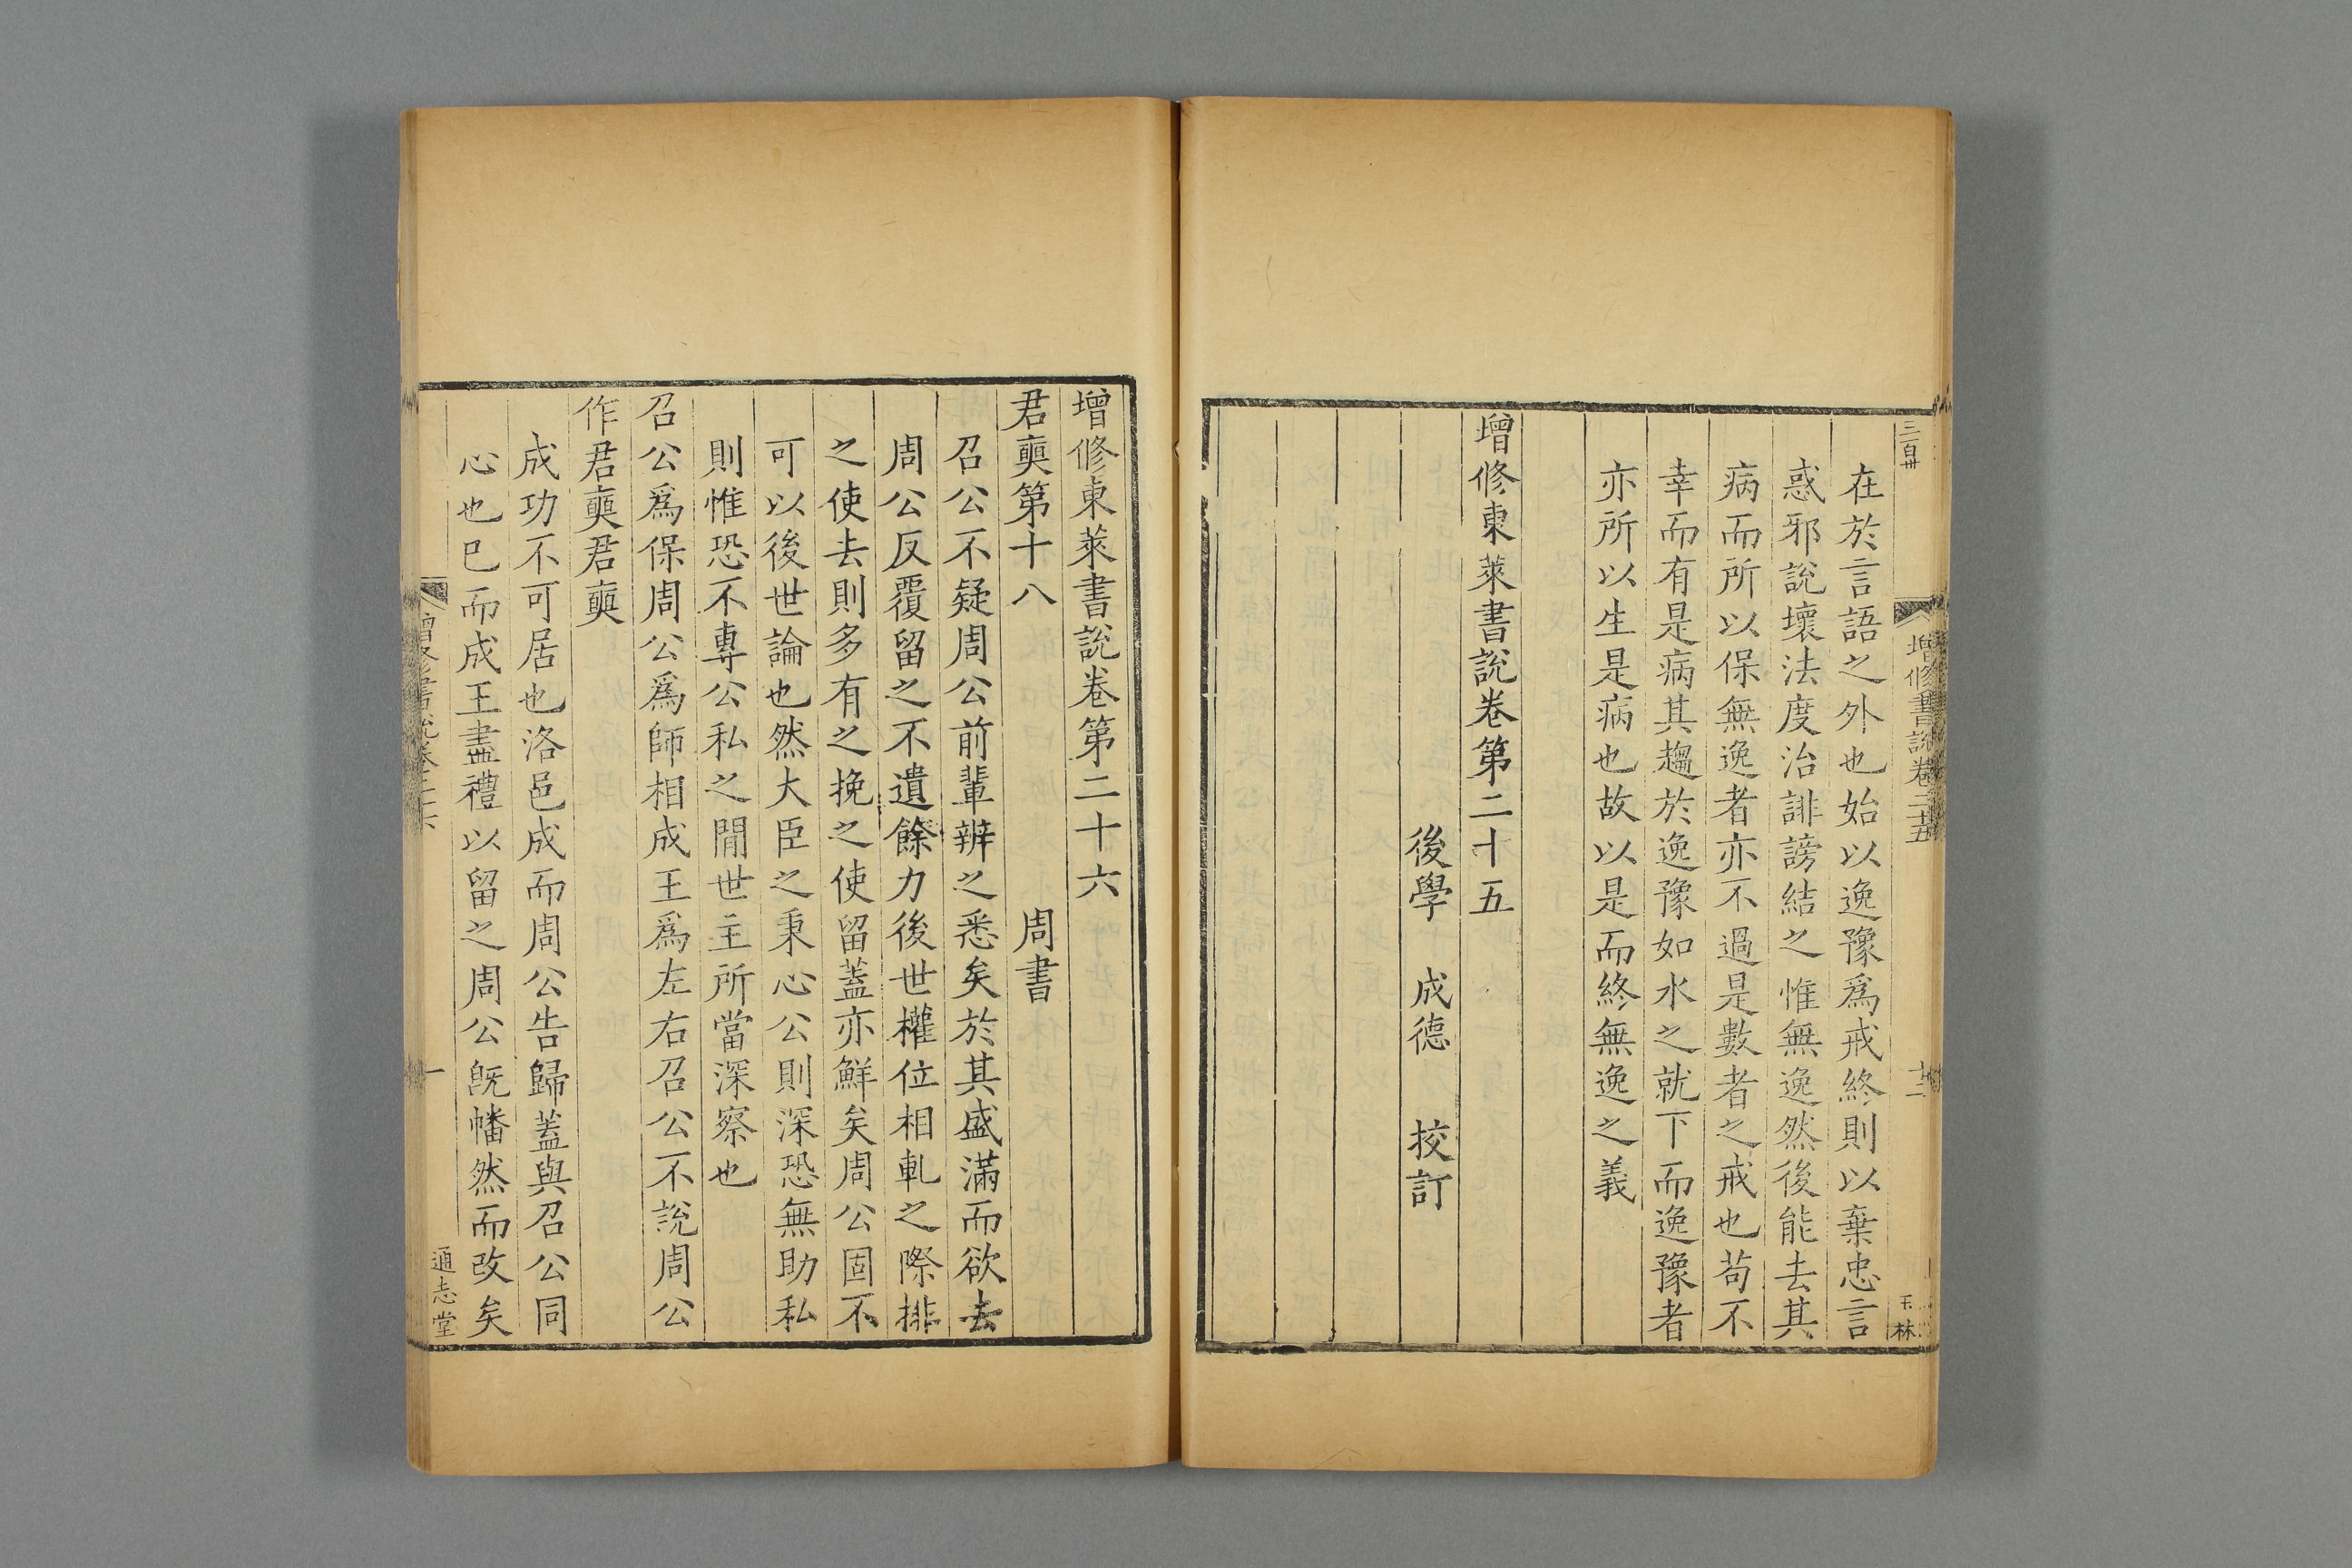 三百卅
增修書説卷二十五
十二
玉林
在於言語之外也始以逸豫爲戒終則以棄忠言
惑邪說壞法度治誹謗結之惟無逸然後能去其
病而所以保無逸者亦不過是數者之戒也苟不
幸而有是病其趨於逸豫如水之就下而逸豫者
亦所以生是病也故以是而終無逸之義
增修東萊書說卷第二十五
後學 成德 挍訂
增修東萊書說卷第二十六
君奭第十八 周書
召公不疑周公前輩辨之悉矣於其盛滿而欲去
周公反覆留之不遺餘力後世權位相軋之際排
之使去則多有之挽之使留蓋亦鮮矣周公固不
可以後世論也然大臣之秉心公則深恐無助私
則惟恐不專公私之閒世主所當深察也
召公爲保周公爲師相成王爲左右召公不說周公
作君奭君奭
成功不可居也洛邑成而周公告歸蓋與召公同
心也已而成王盡禮以留之周公旣幡然而改矣
增修書說卷二十六
一
通志堂